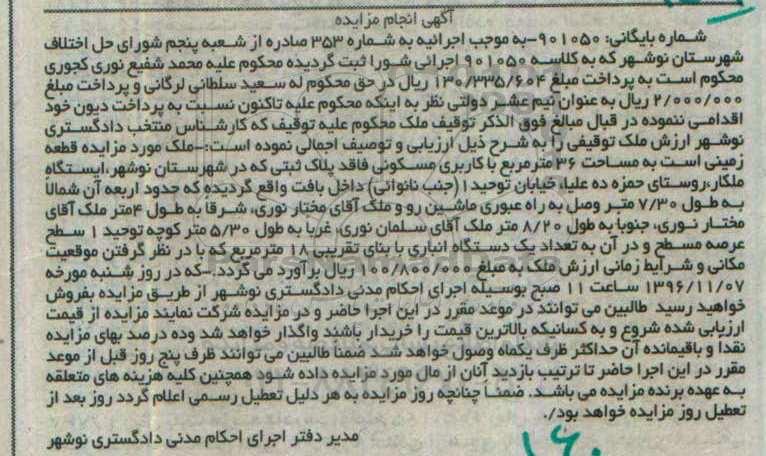 آگهی انجام مزایده
شماره بایگانی: ۹۰۱۰۵۰-به موجب اجرائیه به شماره ۳۵۳ صادره از شعبه پنجم شورای حل اختلاف
شهرستان نوشهر که به کلاسه ۹۰۱۰۵۰ اجرائی شورا ثبت گردیده محکوم علیه محمد شفیع نوری کجوری
محکوم است به پرداخت مبلغ ۱۳۰/۳۳۵/۶۰۴ ریال در حق محکوم له سعید سلطانی لرگانی و پرداخت مبلغ
۲/۰۰۰/۰۰۰ ریال به عنوان نیم عشر دولتی نظر به اینکه محکوم علیه تاکنون نسبت به پرداخت دیون خود
اقدامی ننموده در قبال مبالغ فوق الذکر توقیف ملک محکوم علیه توقیف که کارشناس منتخب دادگستری
نوشهر ارزش ملک توقیفی را به شرح ذیل ارزیابی و توصیف اجمالی نموده است:-ملک مورد مزایده قطعه
زمینی است به مساحت ۳۶ متر مربع با کاربری مسکونی فاقد پلاک ثبتی که در شهرستان نوشهر،ایستگاه
ملکار،روستای حمزه ده علیا، خیابان توحید۱ (جنب نانوائی) داخل بافت واقع گردیده که حدود اربعه آن شمالا
به طول ۷/۳۰ متر وصل به راه عبوری ماشین رو و ملک آقای مختار نوری، شرقا به طول ۴متر ملک آقای
مختار نوری، جنوبا به طول ۸/۲۰ متر ملک آقای سلمان نوری، غربا به طول ۵/۳۰ متر کوچه توحید ۱ سطح
عرصه مسطح و در آن به تعداد یک دستگاه انباری با بنای تقریبی ۱۸ مترمربع که با در نظر گرفتن موقعیت
مکانی و شرایط زمانی ارزش ملک به مبلغ ۱۰۰/۸۰۰/۰۰۰ ریال برآورد می گردد.-که در روز شنبه مورخه
۱۳۹۶/۱۱/۰۷ ساعت ۱۱ صبح بوسیله اجرای احکام مدنی دادگستری نوشهر از طریق مزایده بفروش
خواهید رسید طالبین می توانند در موعد مقرر در این اجرا حاضر و در مزایده شرکت نمایند مزایده از قیمت
ارزیابی شده شروع و به کسانیکه بالاترین قیمت را خریدار باشند واگذار خواهد شد وده درصد بهای مزایده
نقدا و باقیمانده آن حداکثر ظرف یکماه وصول خواهد شد ضمنا طالبین می توانند ظرف پنج روز قبل از موعد
مقرر در این اجرا حاضر تا ترتیب بازدید آنان از مال مورد مزایده داده شود همچنین کلیه هزینه های متعلقه
به عهده برنده مزایده می باشد. ضمنا چنانچه روز مزایده به هر دلیل تعطیل رسمی اعلام گردد روز بعد از
تعطیل روز مزایده خواهد بود/.
مدیر دفتر اجرای احکام مدنی دادگستری نوشهر